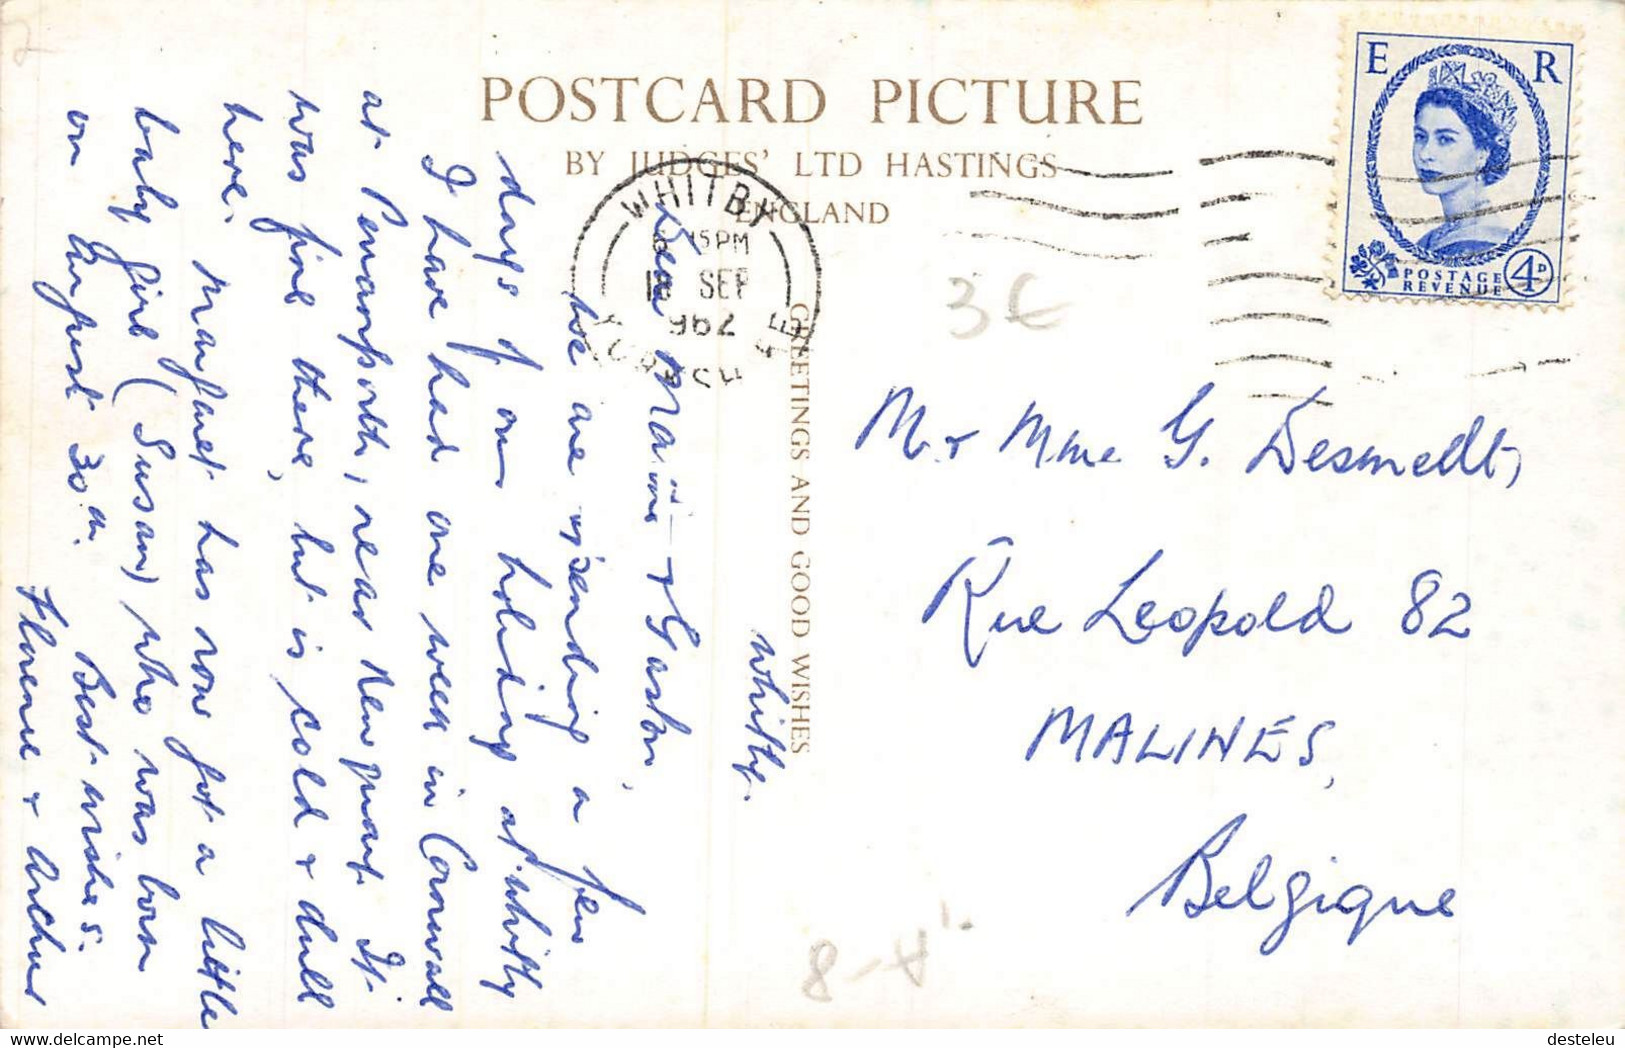 POSTCARD PICTURE
BY JUDGES' LTD HASTINGS
ENGLAND
GREETINGS AND GOOD WISHES
E R
POSTAGE
REVENUE
4D
WHITBY
15 PM
18 SEP
1962
YORKSH
3 €
8-4'-
Whitby.
Dear & Gaston,
We are spending a few
days of our holiday at Whitby
I have had one week in Cornwall
at Perranporth, near Newquay. It
was fine there, but is cold & dull
here. Margaret has now got a little
baby girl (Susan) who was born
on August 30th. Best wishes.
Florence & Arthur
Mr & Mme G. Desmedt,
Rue Leopold 82
MALINES,
Belgique
desteleu